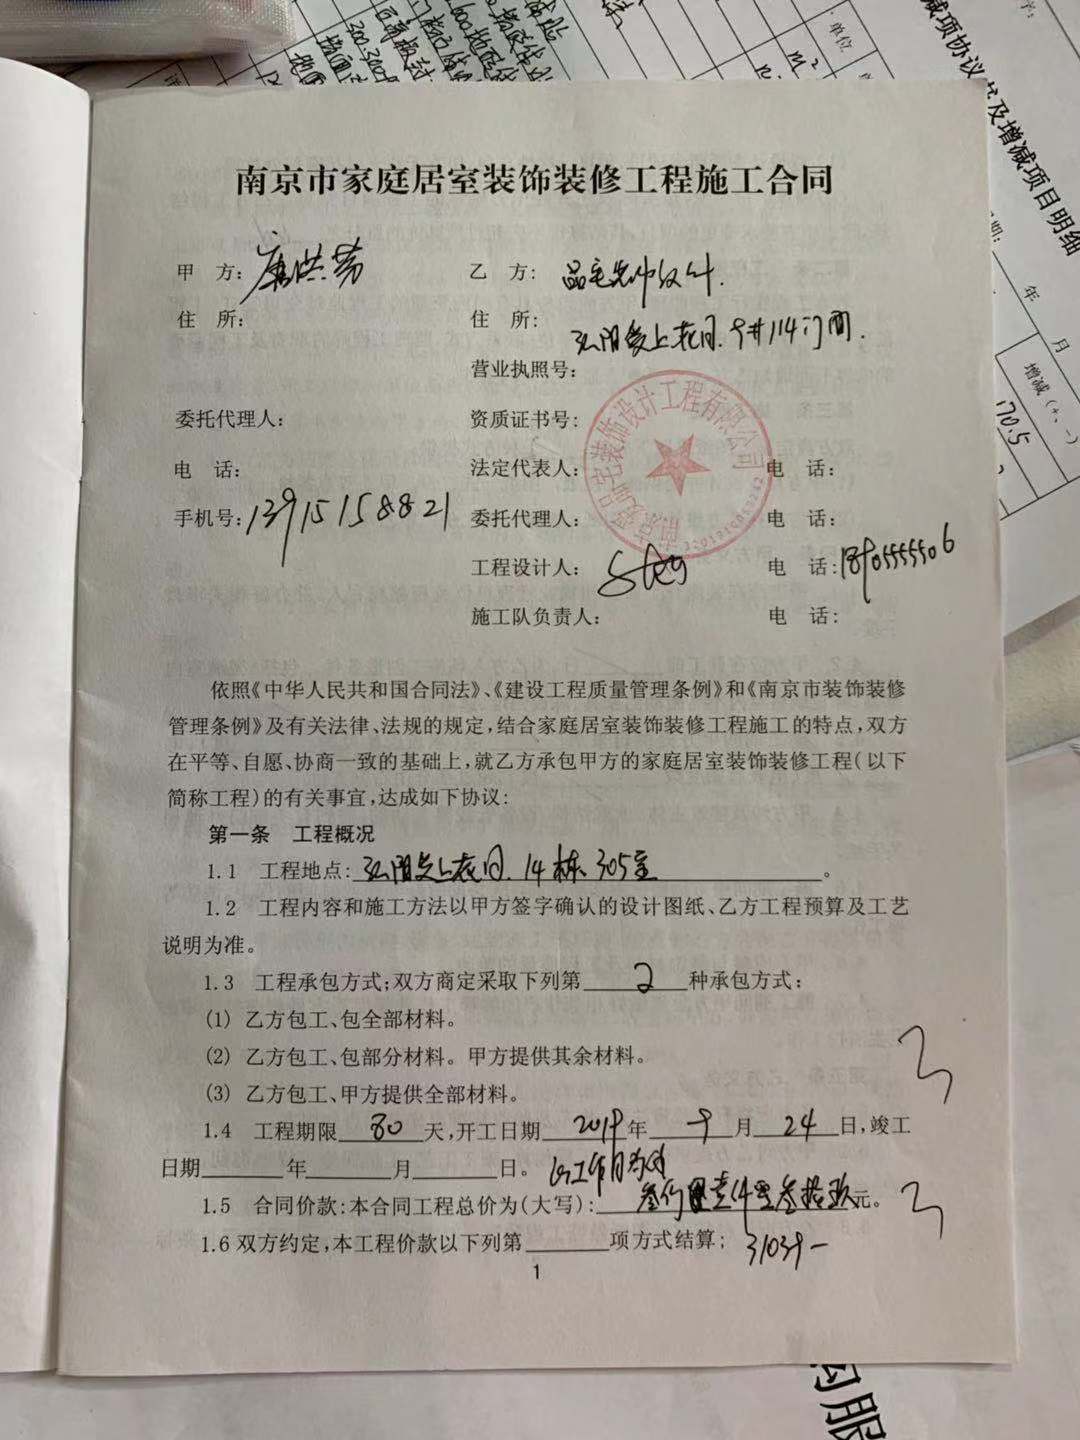 南京市家庭居室装饰装修工程施工合同
甲 方: 乙 方:
住 所: 住 所: 弘阳爱上花园. 9#114门面.
营业执照号:
委托代理人: 资质证书号:
电 话: 法定代表人: 电 话:
手机号: 13915158821 委托代理人: 电 话:
工程设计人: 电 话:
施工队负责人: 电 话:
装饰设计工程有限公司
依照《中华人民共和国合同法》、《建设工程质量管理条例》和《南京市装饰装修
管理条例》及有关法律、法规的规定,结合家庭居室装饰装修工程施工的特点,双方
在平等、自愿、协商一致的基础上,就乙方承包甲方的家庭居室装饰装修工程(以下
简称工程)的有关事宜,达成如下协议:
第一条 工程概况
1.1 工程地点: 弘阳爱上花园. 14栋 305室。
1.2 工程内容和施工方法以甲方签字确认的设计图纸、乙方工程预算及工艺
说明为准。
1.3 工程承包方式;双方商定采取下列第 2 种承包方式:
(1) 乙方包工、包全部材料。
(2) 乙方包工、包部分材料。甲方提供其余材料。
(3) 乙方包工、甲方提供全部材料。
1.4 工程期限 80 天,开工日期 2019 年 9 月 24 日,竣工
日期 年 月 日。
1.5 合同价款:本合同工程总价为(大写): 元。
1.6 双方约定,本工程价款以下列第 项方式结算; 31039-
1
减项协议书及增减项目明细
单位
M²
年 月
增减(+、-)
70.5